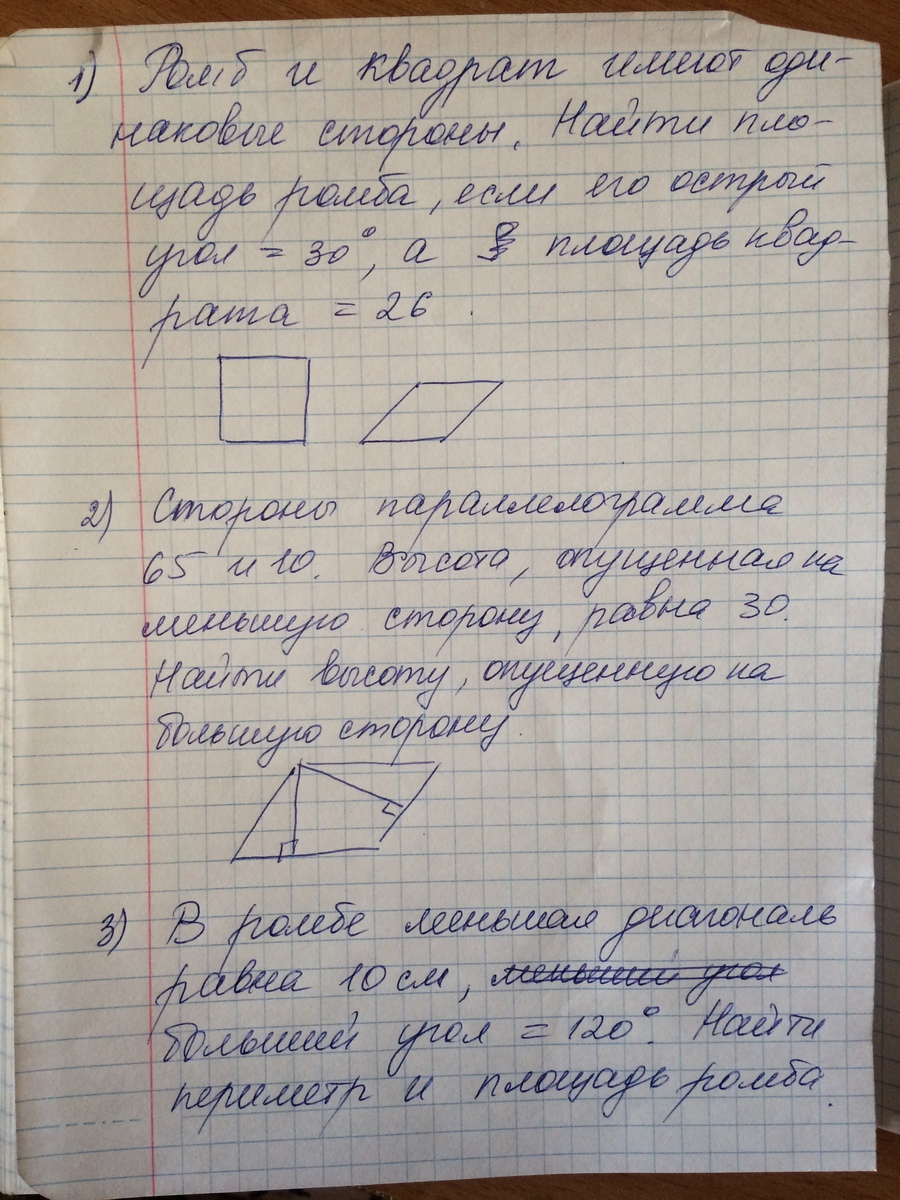 1) Ромб и квадрат имеют оди-
наковые стороны. Найти пло-
щадь ромба, если его острый
угол = 30°, а площадь квад-
рата = 26.
2) Стороны параллелограмма
65 и 10. Высота, опущенная на
меньшую сторону, равна 30.
Найти высоту, опущенную на
большую сторону.
3) В ромбе меньшая диагональ
равна 10 см, меньший угол
больший угол = 120°. Найти
периметр и площадь ромба